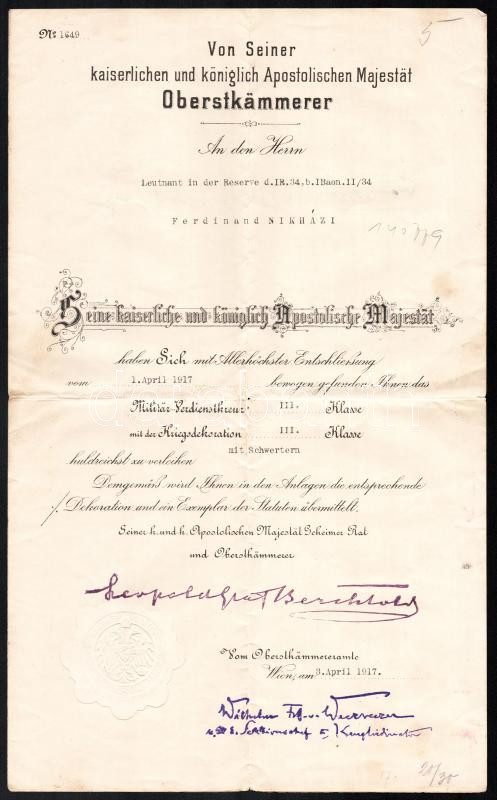 № 1649
5
Von Seiner
kaiserlichen und königlich Apostolischen Majestät
Oberstkämmerer
An den Herrn
Leutnant in der Reserve d.IR.34,b.IBaon.II/34
Ferdinand NIKHÁZI
Seine kaiserliche und königlich Apostolische Majestät
haben Sich mit Allerhöchster Entschließung
vom 1.April 1917 bewogen gefunden Ihnen das
Militär-Verdienstkreuz III. Klasse
mit der Kriegsdekoration III. Klasse
mit Schwertern
huldreichst zu verleihen
Demgemäß wird Ihnen in den Anlagen die entsprechende
·/. Dekoration und ein Exemplar der Statuten übermittelt.
Seiner k. und k. Apostolischen Majestät Geheimer Rat
und Oberstkämmerer
Leopold Graf Berchtold
Vom Oberstkämmereramte
Wien, am 3.April 1917.
Wilhelm Frh. v.
20/30